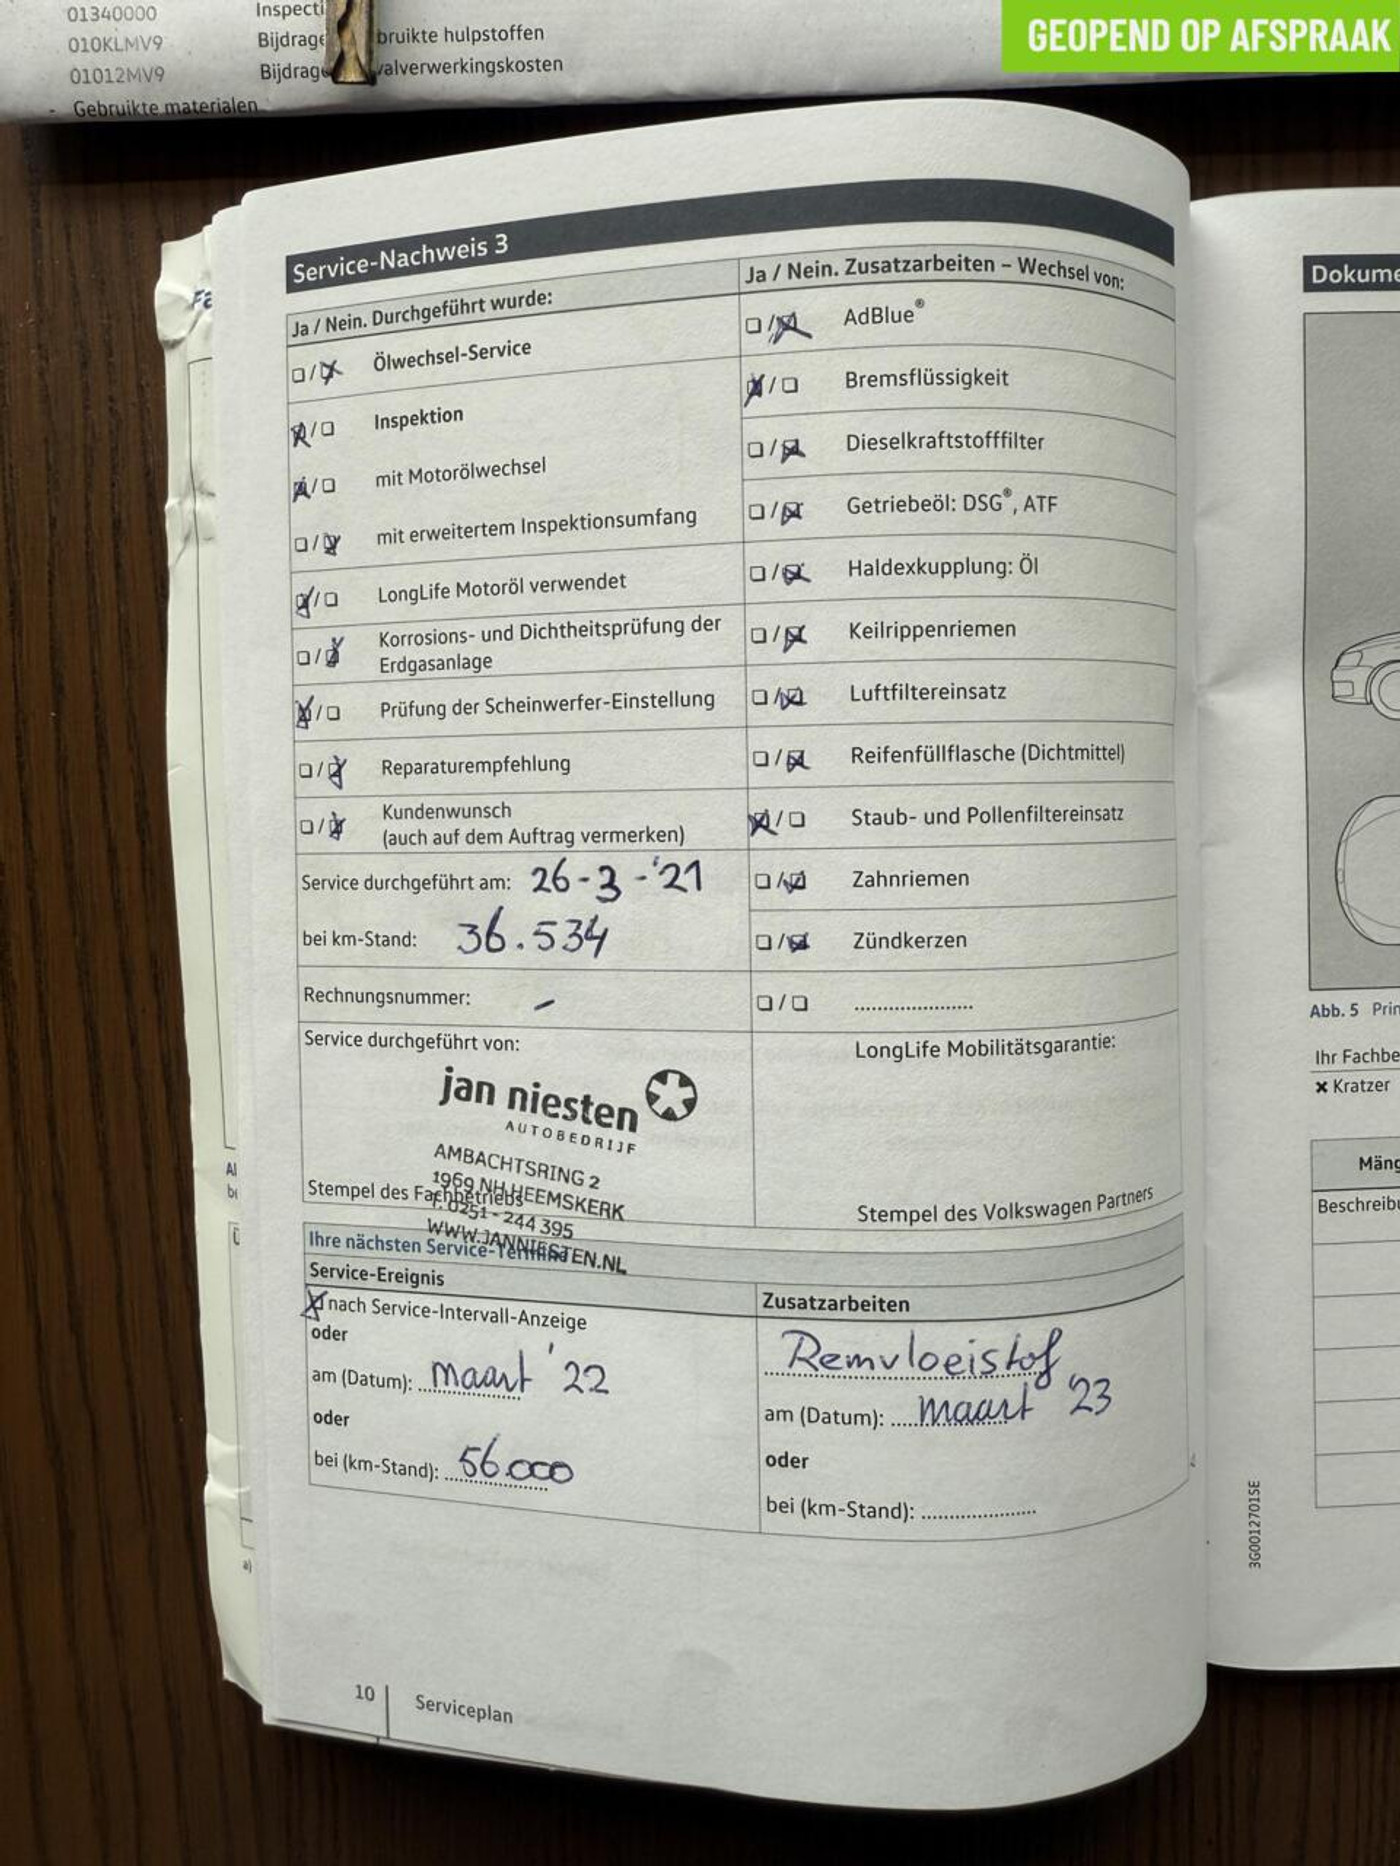 01340000 Inspecti
010KLMV9 Bijdrage bruikte hulpstoffen
01012MV9 Bijdrage valverwerkingskosten
- Gebruikte materialen
GEOPEND OP AFSPRAAK
Service-Nachweis 3
Ja / Nein. Durchgeführt wurde:
Ölwechsel-Service
Inspektion
mit Motorölwechsel
mit erweitertem Inspektionsumfang
LongLife Motoröl verwendet
Korrosions- und Dichtheitsprüfung der
Erdgasanlage
Prüfung der Scheinwerfer-Einstellung
Reparaturempfehlung
Kundenwunsch
(auch auf dem Auftrag vermerken)
Service durchgeführt am: 26-3-'21
bei km-Stand: 36.534
Rechnungsnummer: -
Service durchgeführt von:
jan niesten
AUTOBEDRIJF
AMBACHTSRING 2
1969 NH HEEMSKERK
T. 0251 - 244 395
WWW.JANNIESTEN.NL
Stempel des Fachbetriebs
Ja / Nein. Zusatzarbeiten – Wechsel von:
AdBlue®
Bremsflüssigkeit
Dieselkraftstofffilter
Getriebeöl: DSG®, ATF
Haldexkupplung: Öl
Keilrippenriemen
Luftfiltereinsatz
Reifenfüllflasche (Dichtmittel)
Staub- und Pollenfiltereinsatz
Zahnriemen
Zündkerzen
....................
LongLife Mobilitätsgarantie:
Stempel des Volkswagen Partners
Ihre nächsten Service-Termine
Service-Ereignis
nach Service-Intervall-Anzeige
oder
am (Datum): maart '22
oder
bei (km-Stand): 56.000
Zusatzarbeiten
Remvloeistof
am (Datum): maart '23
oder
bei (km-Stand): ....................
10 Serviceplan
3G0012701SE
Dokume
Abb. 5 Prin
Ihr Fachbe
✖ Kratzer
Mäng
Beschreibu